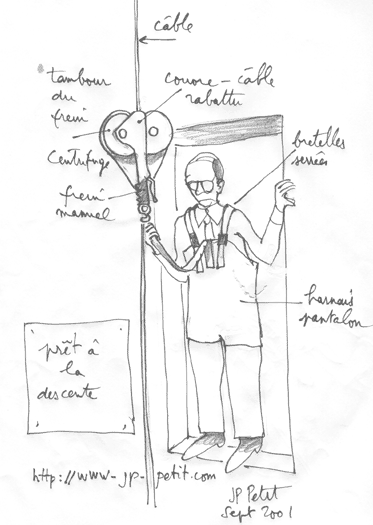 câble
tambour
du
frein
centrifuge
couvre-câble
rabattu
bretelles
serrées
frein
manuel
harnais
pantalon
prêt à
la
descente
http://www-jp-petit.com
JP Petit
Sept 2001